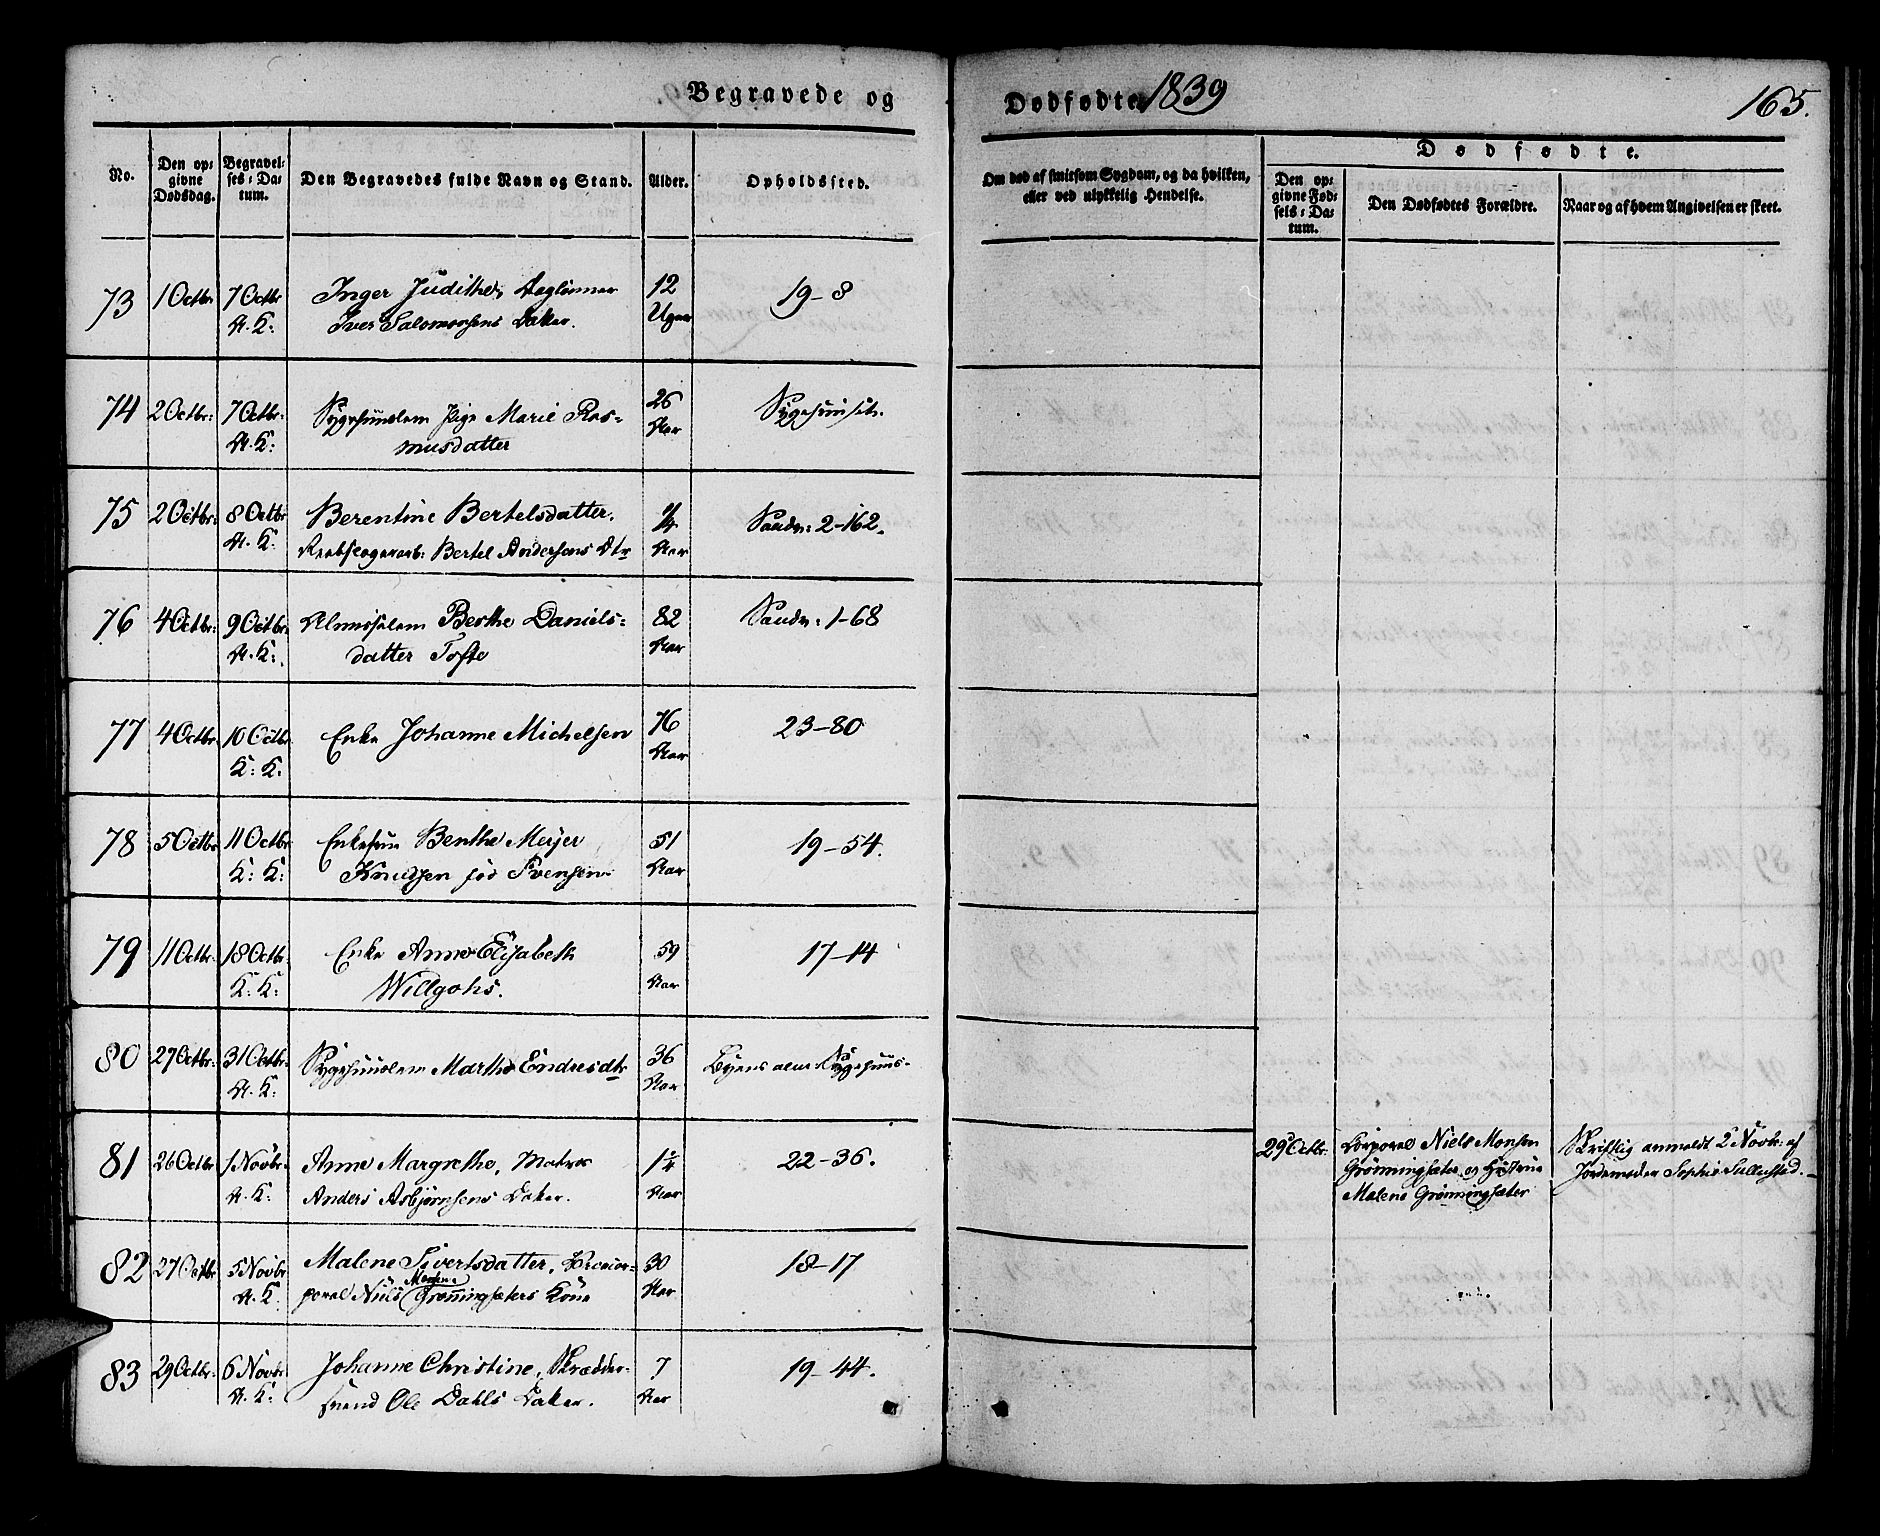 Begravede og
Dødfødte 1839
165.
No.
Den op-
givne
Dødsdag.
Begravel-
ses-Da-
tum.
Den Begravedes fulde Navn og Stand.
Alder.
Opholdssted.
Om død af smitsom Sygdom, og da hvilken,
eller ved ulykkelig Hendelse.
Dødfødte.
Den op-
givne Fød-
sels-Da-
tum.
Den Dødfødtes Forældre.
Naar og af hvem Angivelsen er skeet.
73 1 Octbr 7 Octbr Inger Judithe, Daglønner 12 19-8
A. K: Iver Salomonsens Datter. Uger
74 2 Octbr: 7 Octbr: Sygehuuslem Pige Marie Ras- 26 Sygehuuset.
A. K: musdatter Aar
75 2 Octbr: 8 Octbr Berentine Bertelsdatter. Sandv: 2-162.
A. K. Bertel Andersens Dtr Aar
76 4 Octbr: 9 Octbr: Almisselem Berthe Daniels- 82 Sandv: 1-68
A. K: datter Tofte Aar
77 4 Octbr. 10 Octbr. Enke Johanne Michelsen 76 23-80
K: K. Aar
78 5 Octbr 11 Octbr Enkefru Benthe Meyer 51 19-54.
K: K: Knudsen fød Svensen Aar
79 11 Octbr. 18 Octbr: Enke Anne Elisabeth 59 17-14
K: K: Willgohs. Aar
80 27 Octbr: 31 Octbr: Sygehuuslem Marthe Endresdtr 36 Byens alm: Sygehuus-
A. K: Aar
81 26 Octbr 1 Novbr. Anne Margrethe, Matros 1¼ 22-36.
A. K: Anders Asbjørnsens Datter. Aar
29 Octbr: Corporal Niels Monsen
Grønningsæter og Hustrue
Malene Grønningsæter
Skriftlig anmeldt 2 Novbr: af
Jordemoder Sophie Tullustad.
82 27 Octbr 5 Novbr Malene Sivertsdatter, 30 18-17
A. K: poral Niels Monsens Grønningsæters Kone Aar
83 29 Octbr: 6 Novbr Johanne Christine, Skrædder- 7 19-44.
A. K: svend Ole Dahls Datter. Aar